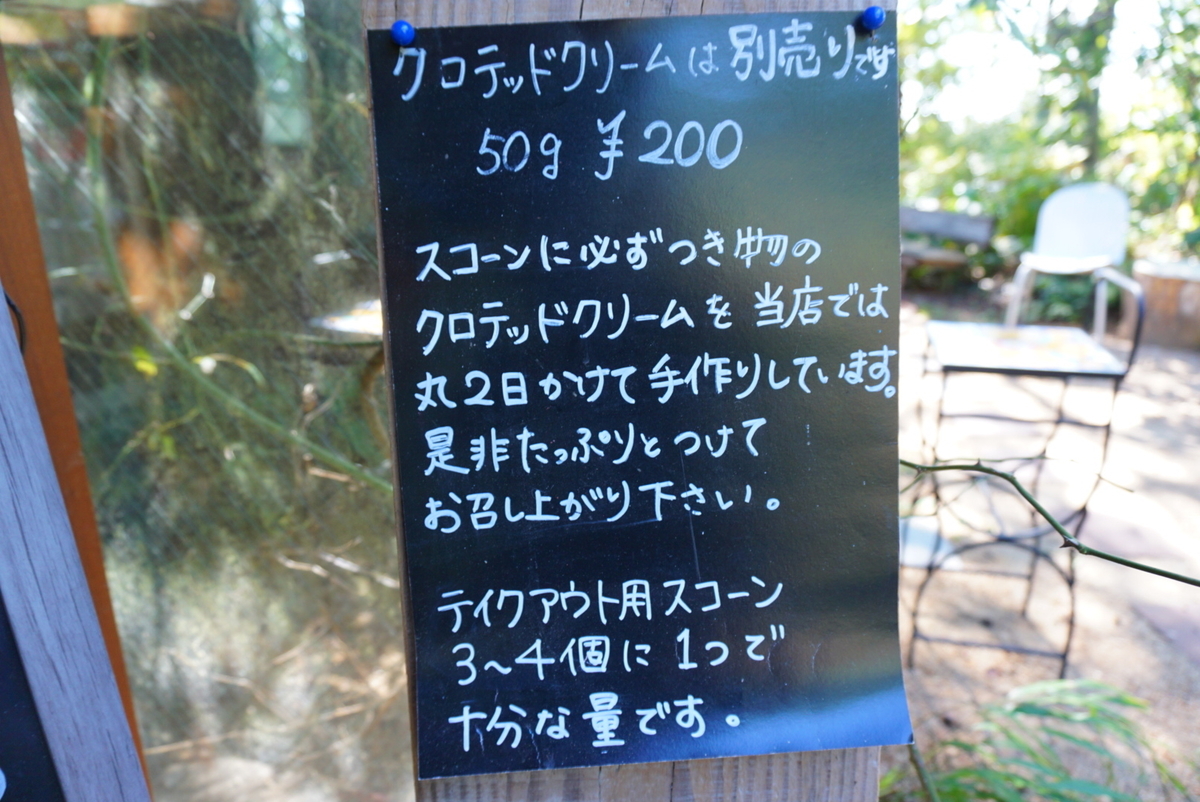 クロテッドクリームは別売りです
50g ¥200
スコーンに必ずつき物の
クロテッドクリームを当店では
丸2日かけて手作りしています。
是非たっぷりとつけて
お召し上がり下さい。
テイクアウト用スコーン
3~4個に1つで
十分な量です。